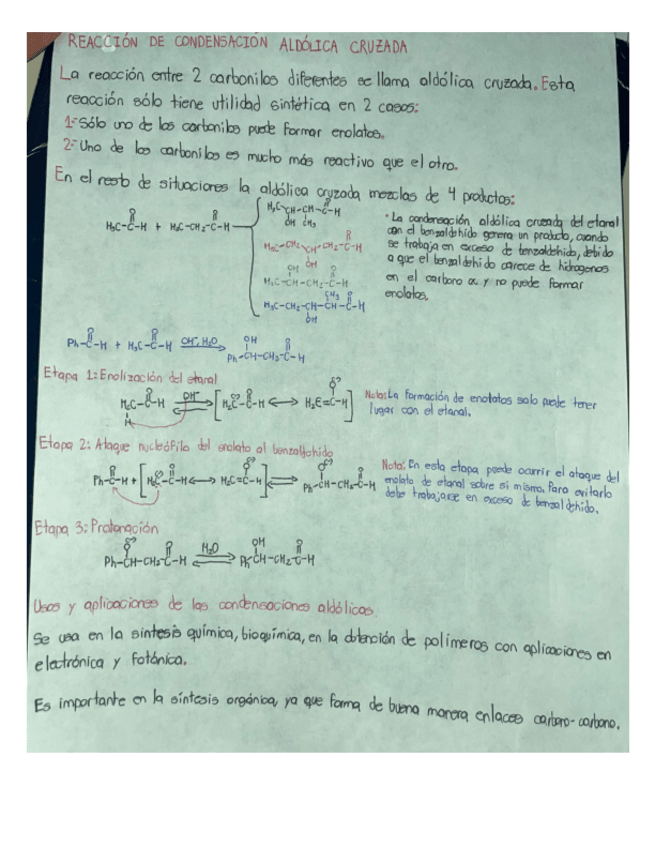 REACCIÓN DE CONDENSACIÓN ALDÓLICA CRUZADA
La reacción entre 2 carbonilos diferentes se llama aldólica cruzada. Esta
reacción sólo tiene utilidad sintética en 2 casos:
1.- Sólo uno de los carbonilos puede formar enolatos.
2.- Uno de los carbonilos es mucho más reactivo que el otro.
En el resto de situaciones la aldólica cruzada mezclas de 4 productos:
H₃C-CH-CH-C-H
OH CH₃
H₃C-C-H + H₃C-CH₂-C-H
H₃C-CH₂-CH-CH₂-C-H
OH
OH
H₃C-CH-CH₂-C-H
CH₃
H₃C-CH₂-CH-CH-C-H
OH
* La condensación aldólica cruzada del etanal
con el benzaldehído genera un producto, cuando
se trabaja en exceso de benzaldehído, debido
a que el benzaldehído carece de hidrogenos
en el carbono α y no puede formar
enolatos.
Ph-C-H + H₃C-C-H OH⁻, H₂O Ph-CH-CH₂-C-H
OH
Etapa 1: Enolización del etanal
H₂C-C-H OH⁻ [H₂C-C-H ⟷ H₂C=C-H]
H
Nota: La formación de enolatos solo puede tener
lugar con el etanal.
Etapa 2: Ataque nucleófilo del enolato al benzaldehído
Ph-C-H + [H₂C-C-H ⟷ H₂C=C-H] ⇌ Ph-CH-CH₂-C-H
Nota: En esta etapa puede ocurrir el ataque del
enolato de etanal sobre si mismo. Para evitarlo
debe trabajarse en exceso de benzaldehído.
Etapa 3: Protonación
Ph-CH-CH₂-C-H H₂O ⇌ Ph-CH-CH₂-C-H
OH
Usos y aplicaciones de las condensaciones aldólicas
Se usa en la síntesis química, bioquímica, en la obtención de polímeros con aplicaciones en
electrónica y fotónica.
Es importante en la síntesis orgánica, ya que forma de buena manera enlaces carbono-carbono.